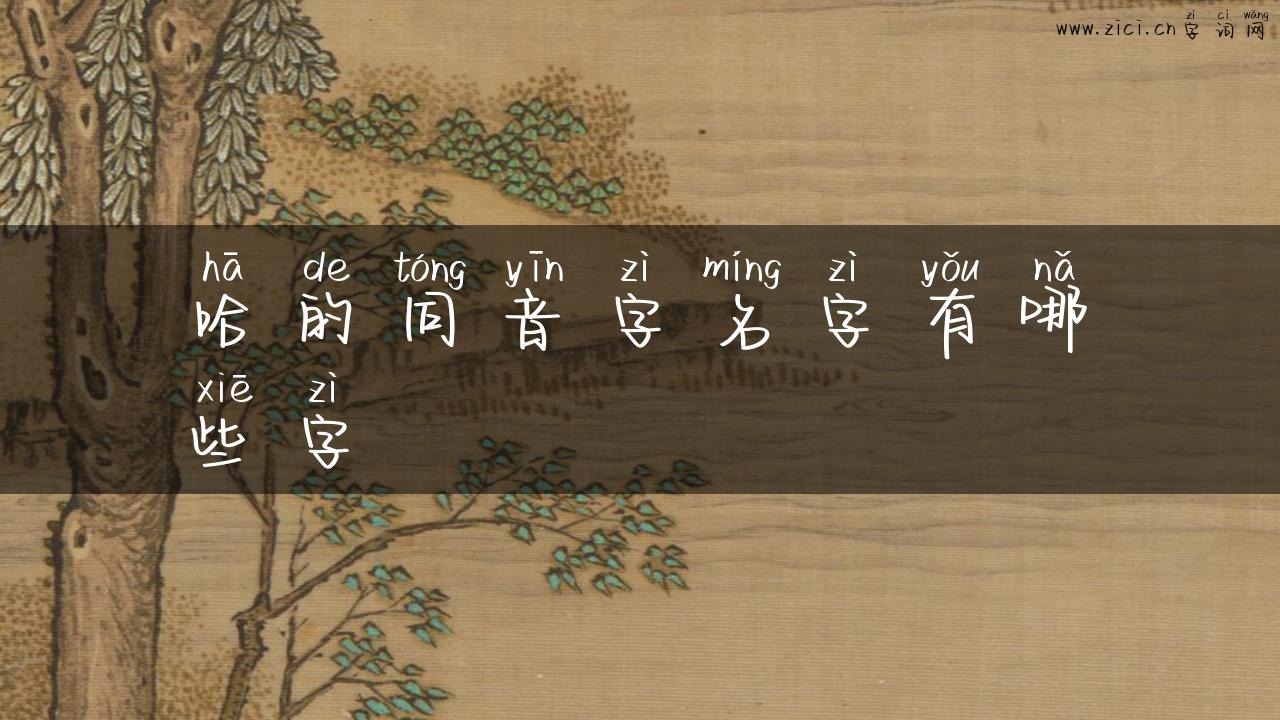 zì cí wǎng
www.zici.cn 字词网
hā de tóng yīn zì míng zì yǒu nǎ
哈的同音字名字有哪
xiē zì
些字